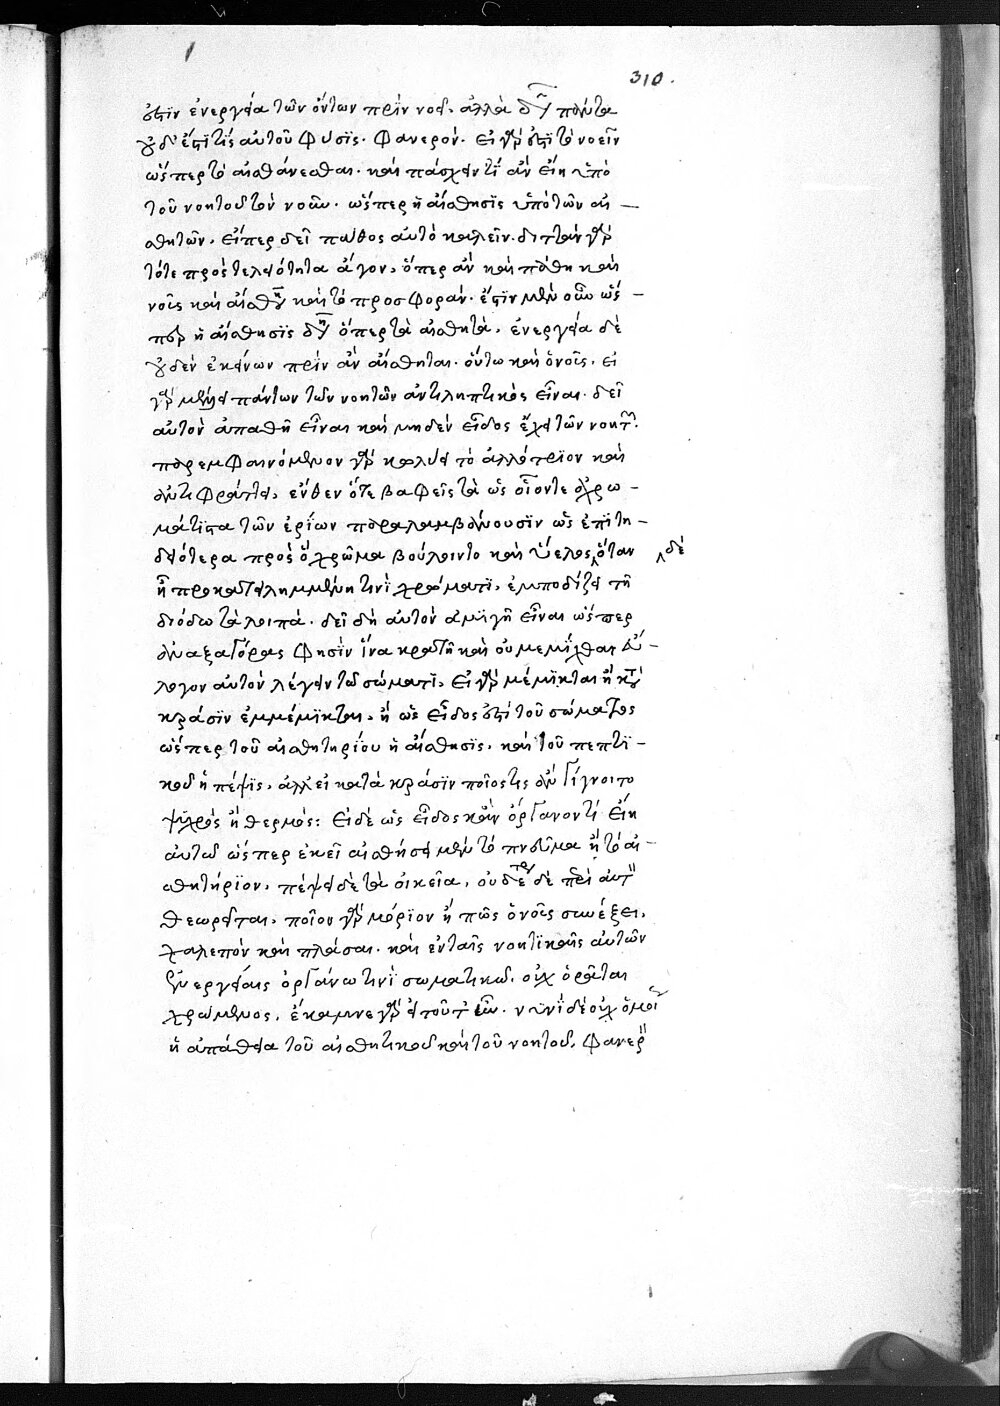 310.
ἐστὶν ἐνεργεία τῶν ὄντων πρὶν νοεῖ. ἀλλὰ δυνάμει πάντα
οὐδ' ἐστί τίς αὐτοῦ φύσις. φανερόν. εἰ γάρ ἐστι τὸ νοεῖν
ὥσπερ τὸ αἰσθάνεσθαι. καὶ πάσχειν τί ἂν εἴη ὑπὸ
τοῦ νοητοῦ τὸν νοῦν. ὥσπερ ἡ αἴσθησις ὑπὸ τῶν αἰ—
σθητῶν. εἴπερ δεῖ πάθος αὐτὸ καλεῖν. διττὸν γὰρ
τότε πρὸς τελειότητα ἄγον, ὅπερ ἂν καὶ πάθη καὶ
νοῦς καὶ αἴσθησις κατὰ προσφοράν. ἔστιν μὲν οὖν ὥσ—
περ ἡ αἴσθησις δυνάμει ὅπερ τὰ αἰσθητά, ἐνεργεία δὲ
οὐδὲν ἐκείνων πρὶν ἂν αἴσθηται. οὕτω καὶ ὁ νοῦς. εἰ
γὰρ μέλλει πάντων τῶν νοητῶν ἀντιληπτικὸς εἶναι. δεῖ
αὐτὸν ἀπαθῆ εἶναι καὶ μηδὲν εἶδος ἔχειν τῶν νοητῶν.
παρεμφαινόμενον γὰρ κωλύει τὸ ἀλλότριον καὶ
ἀντιφράττει, ἔνθεν ὅτε βαφεῖς τὰ ὡς οἷόν τε ἀχρω—
μάτιστα τῶν ἐρίων παραλαμβάνουσιν ὡς ἐπιτη—
δειότερα πρὸς ὃ χρῶμα βούλοιντο καὶ ὕελος ὅταν δὲ
ᾖ προκατειλημμένη τινὶ χρώματι, ἐμποδίζει τῇ
διόδω τὰ λοιπά. δεῖ δὴ αὐτὸν ἀμιγῆ εἶναι ὥσπερ
ἀναξαγόρας φησὶν ἵνα κρατῇ καὶ οὐ μεμίχθαι εὔ—
λογον αὐτὸν λέγειν τῶ σώματι. εἰ γὰρ μέμικται ἢ κατὰ
κρᾶσιν ἐμμέμικται, ἢ ὡς εἶδος ἐστὶ τοῦ σώματος
ὥσπερ τοῦ αἰσθητηρίου ἡ αἴσθησις, καὶ τοῦ πεπτι—
κοῦ ἡ πέψις, ἀλλ' εἰ κατὰ κρᾶσιν ποῖός τις ἂν γίγνοιτο
ψυχρὸς ἢ θερμός: εἰ δὲ ὡς εἶδος κἂν ὄργανόν τι εἴη
αὐτῶ ὥσπερ ἐκεῖ αἰσθήσει μὲν τὸ πνεῦμα ἢ τὸ αἰ—
σθητήριον, πέψει δὲ τὰ οἰκεῖα, οὐδέτερον δὲ περὶ αὐτὸν
θεωρεῖται, ποῖον γὰρ μόριον ἢ πῶς ὁ νοῦς συνέξει,
χαλεπὸν καὶ πλάσαι. καὶ ἐν ταῖς νοητικαῖς αὐτῶν
ἐνεργείαις ὀργάνω τινὶ σωματικῶ, οὐχ ὁρᾶται
χρώμενος, ἔκαμνε γὰρ εἰ τοῦτ' ἦν. νυνὶ δὲ οὐχ ὁμοία
ἡ ἀπάθεια τοῦ αἰσθητικοῦ καὶ τοῦ νοητοῦ. φανερὸν